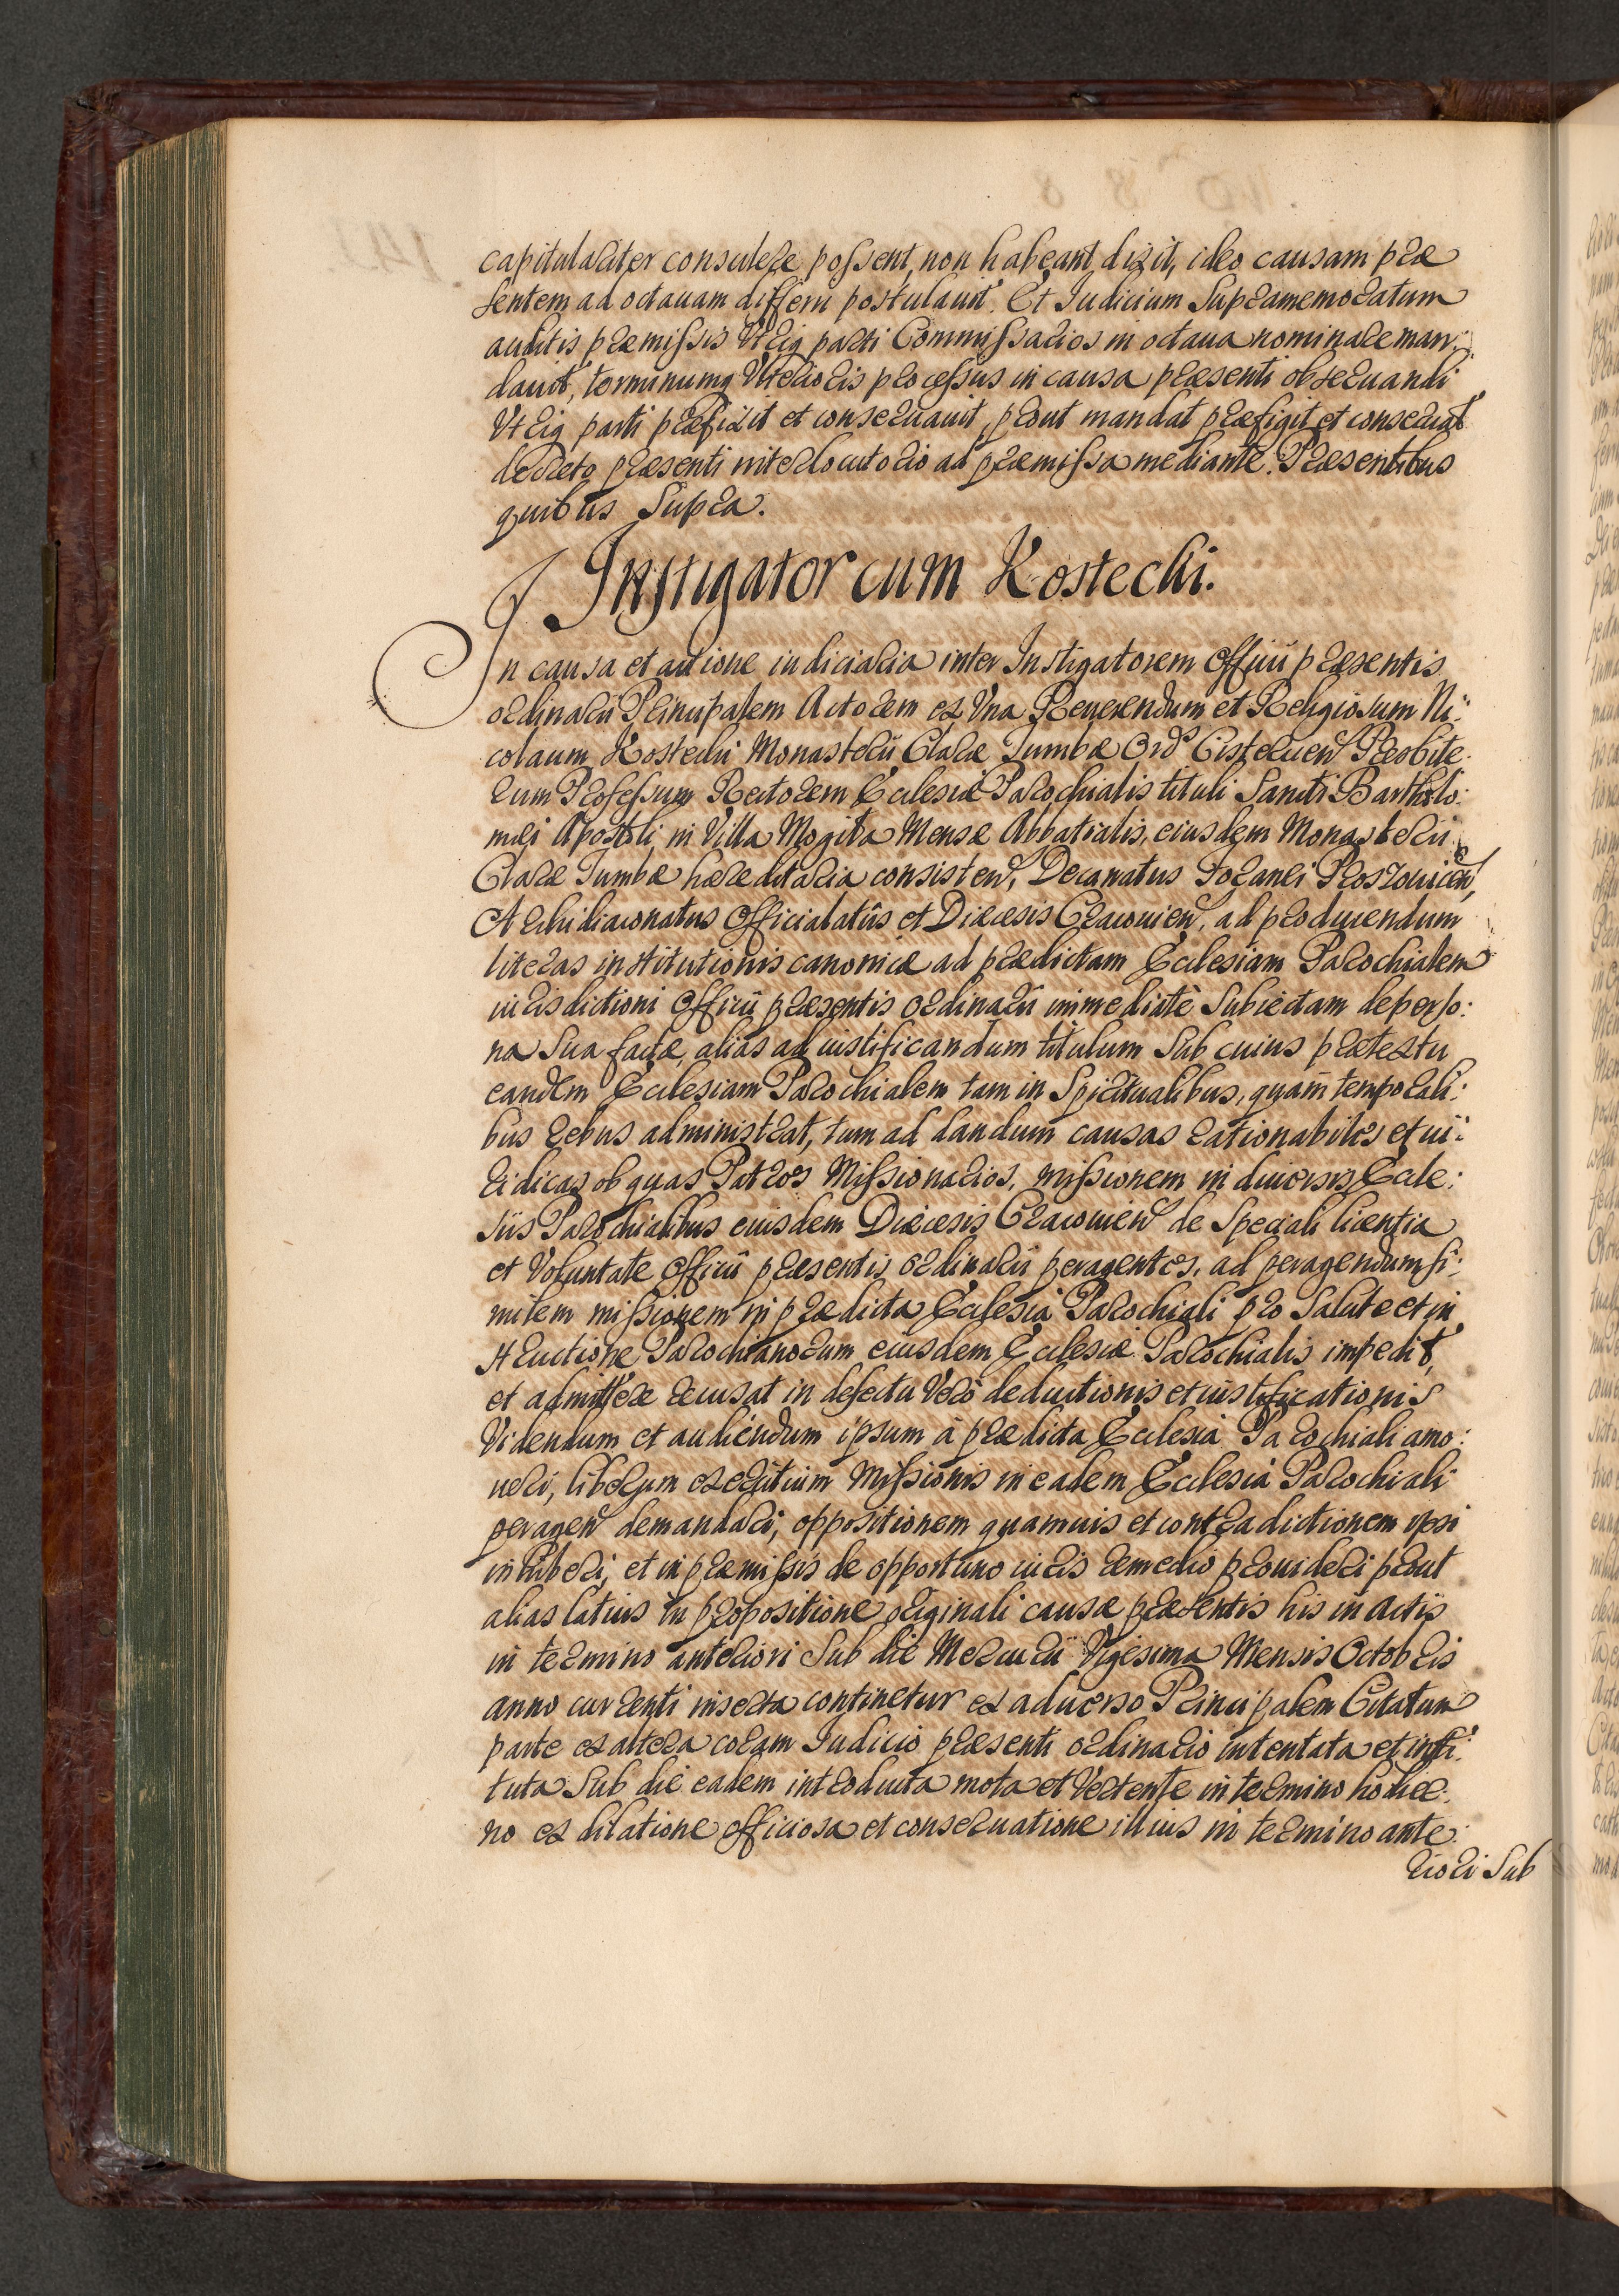 capitulariter consulere possent, non habeant, dixit, ideo causam præ
sentem ad octauam differri postulauit. Et Iudicium Supramemoratum
auditis præmissis Vtriq parti Commissarios in octaua nominare man:
dauit, terminumq Vlterioris processus in causa præsenti obseruandi
Vtriq parti præfixit et conseruauit, prout mandat præfigit et conseruat
decreto præsenti interlocutorio ad præmissa mediante. Præsentibus
quibus Supra.
Instigator cum Kostecki.
In causa et actione iudiciaria inter Instigatorem Officii præsentis
ordinarii Principalem Actorem ex Vna Reuerendum et Religiosum Ni:
colaum Kostecki Monasterii Claræ Tumbæ Ord Cistercien Presbite:
rum Professum Rectorem Ecclesiæ Parochialis tituli Sancti Bartholo:
mæi Apostoli, in Villa Mogiła Mensæ Abbatialis, eiusdem Monasterii
Claræ Tumbæ hæreditaria consisten, Decanatus Foranei Proszouicen,
Archidiaconatus Officialatûs et Diœcesis Cracouien, ad producendum
literas institutionis canonicæ ad prædictam Ecclesiam Parochialem
iurisdictioni Officii præsentis ordinarii immediatè Subiectam de perso:
na Sua factæ, alias ad iustificandum titulum Sub cuius prætextu
eandem Ecclesiam Parochialem tam in Spiritualibus, quàm tempora li:
bus rebus administrat, tum ad dandum causas rationabiles et iu:
ridicas ob quas Patres Missionarios, missionem in diuersis Eccle:
siis Parochialibus eiusdem Diœcesis Cracouien de Speciali licentia
et Voluntate Officii præsentis ordinarii peragentes, ad peragendum si:
milem missionem in prædicta Ecclesia Parochiali pro Salute et in
structione Parochianorum eiusdem Ecclesiæ Parochialis impedit,
et admittere recusat in defectu Verò deductionis et iustificationis
Videndum et audiendum ipsum à prædicta Ecclesià Parochiali amo:
ueri, liberum exercitium Missionis in eadem Ecclesià Parochiali
peragen demandari, oppositionem quamuis et contradictionem ipsi
inhiberi, et in præmissis de opportuno iuris remedio prouideri prout
alias latius in propositione originali causæ præsentis his in Actis
in termino anteriori Sub die Mercurii Vigesima Mensis Octobris
anno currenti inserta continetur ex aduerso Principalem Citatum
parte ex altera coram Iudicio præsenti ordinario intentata et insti:
tuta Sub die eadem introducta mota et Vertente in termino hodier:
no ex dilatione officiosa et conseruatione illius in termino ante:
riori Sub